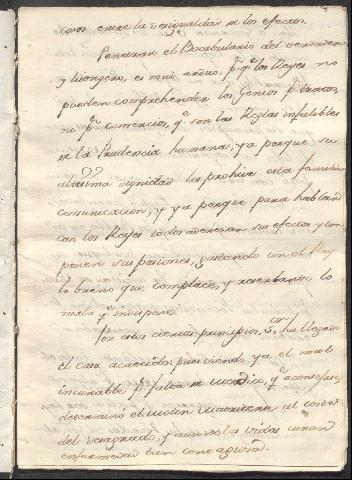 cavos entre la desigualdad de los efectos.
Penetrar el Vocabulario del verdadero
y lisongero, es muy arduo, pr. qe. los Reyes no
pueden comprehender los Genios pr. tratos,
ni pr. comercios, qe. son las Reglas infalibles
de la Prudencia humana; ya porque su
altissima dignidad les prohive esta familiar
comunicacion, y ya porque para hablar
con los Reyes todos aderezan sus efectos y com
ponen sus pasiones, gastando con el Rey
lo bueno que complace, y reserbando lo
malo qe. indispone.
Por estos ciertos principios, Sor. ha llegado
el caso acaecido: pues viendo ya el mal
incurable pr. falta de medio, qe. aconsejase,
determinó el motin quererse al corte
del desagrado, y aun en las vidas curar
enfermedad tan contagiosa.